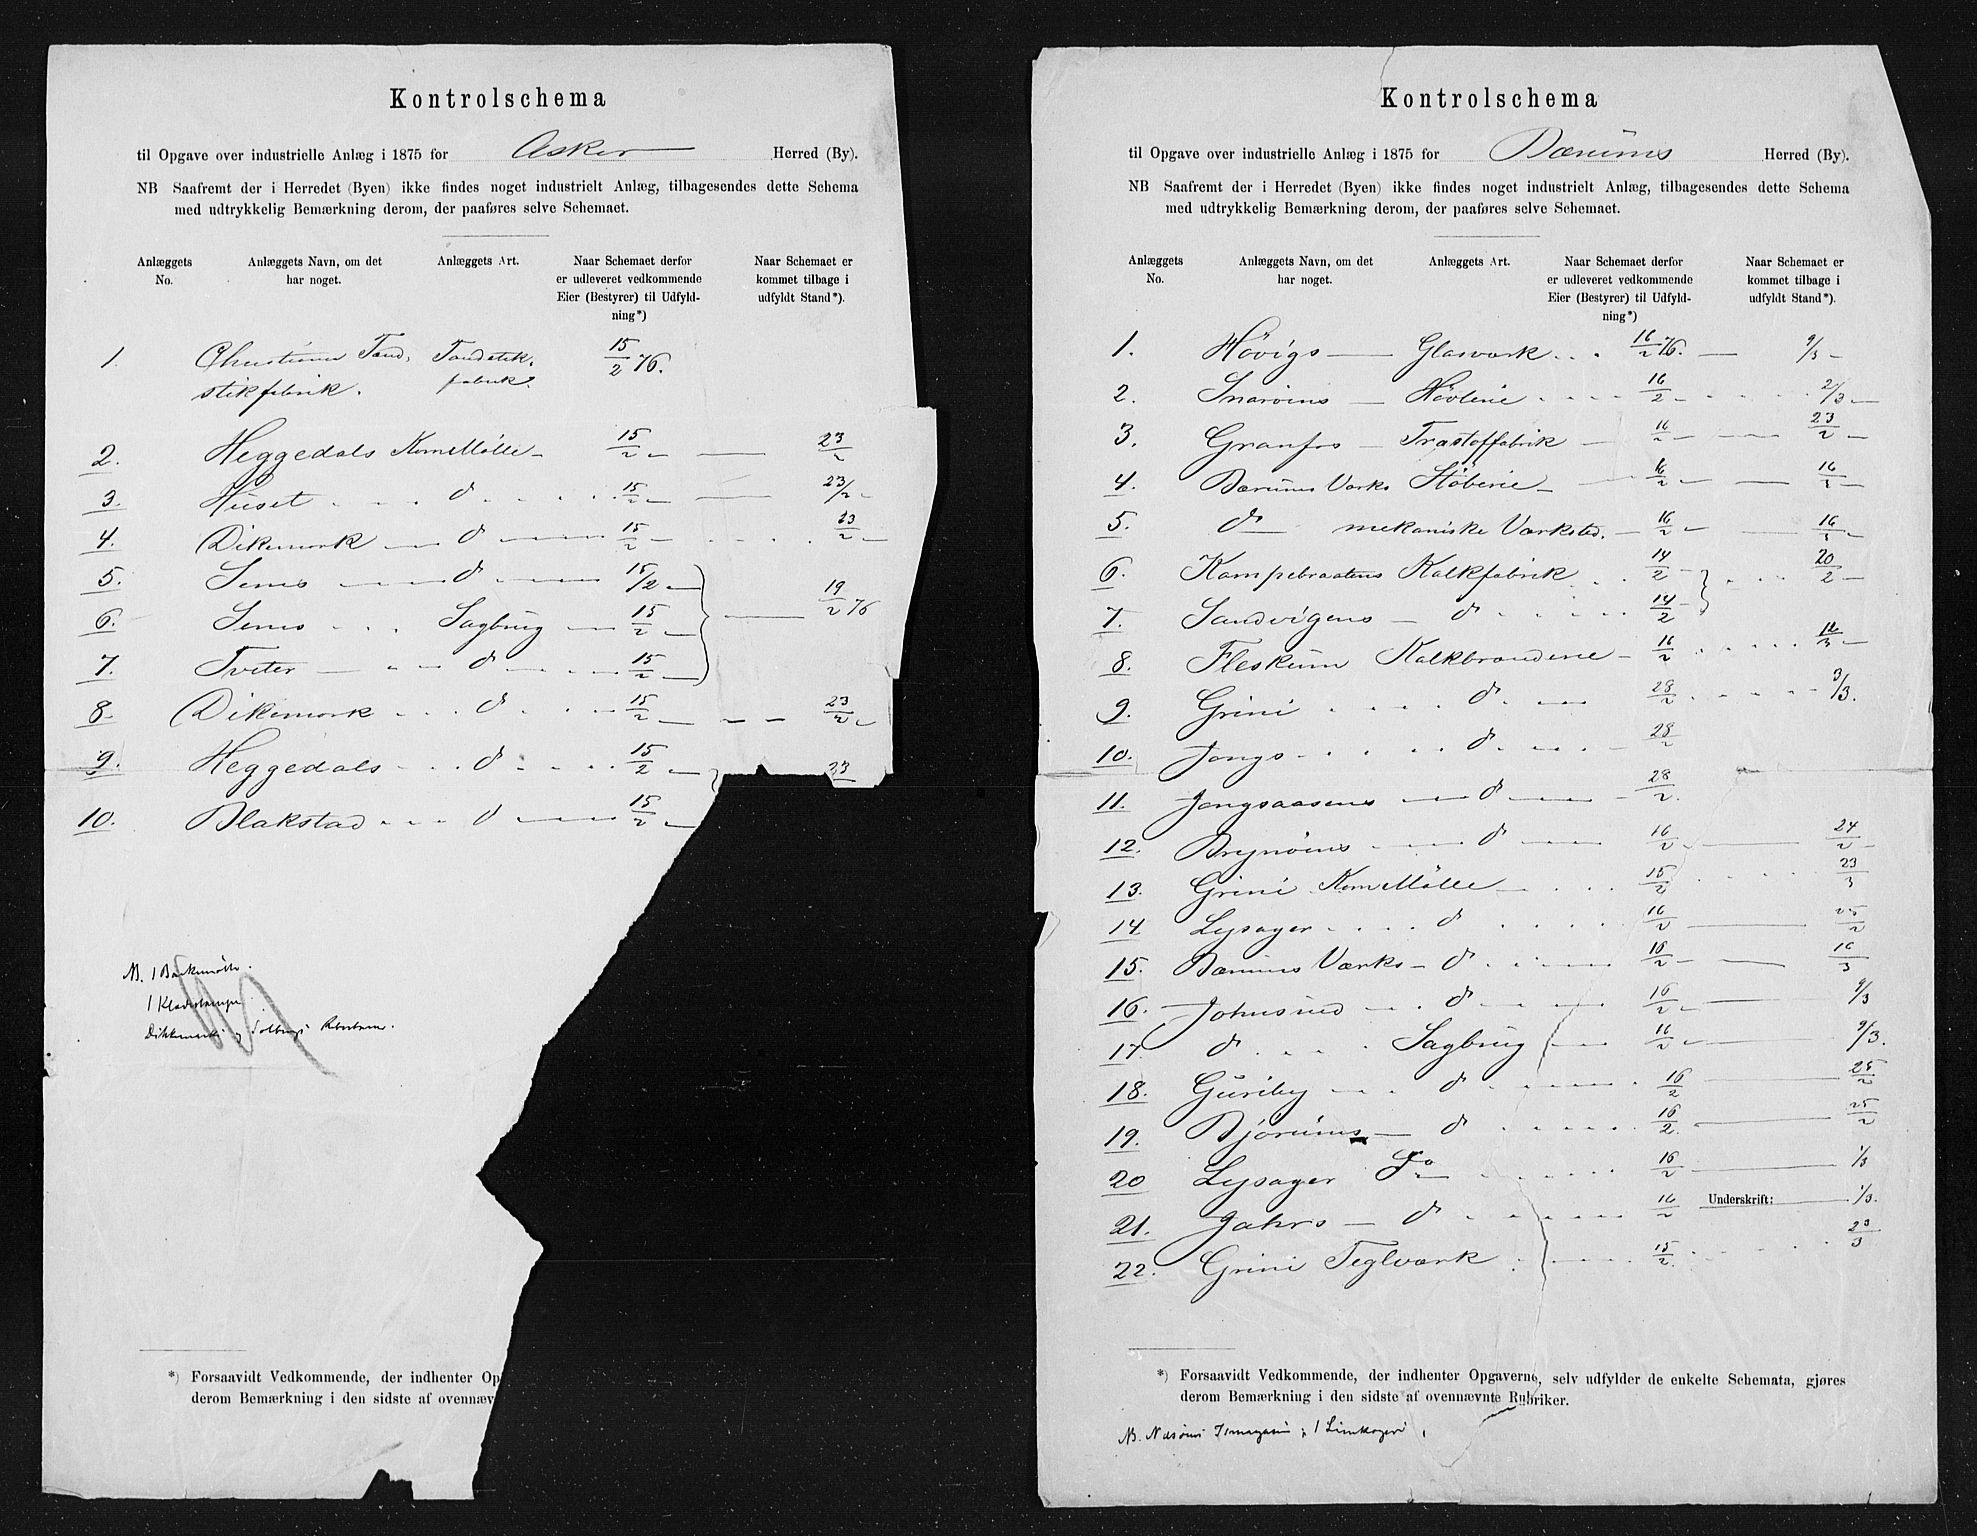 Kontrolschema
til Opgave over industrielle Anlæg i 1875 for Asker Herred (By).
NB Saafremt der i Herredet (Byen) ikke findes noget industrielt Anlæg, tilbagesendes dette Schema
med udtrykkelig Bemærkning derom, der paaføres selve Schemaet.
Anlæggets No. Anlæggets Navn, om det har noget. Anlæggets Art. Naar Schemaet derfor er udleveret vedkommende Eier (Bestyrer) til Udfyldning*) Naar Schemaet er kommet tilbage i udfyldt Stand*).
1. Tænd- Tændstik- 15/2 76.
stikfabrik. fabrik
2. Heggedals KornMölle 15/2 — 23/2
3. Huset . . . do . . . 15/2 — 23/2 -
4. Dikemark — do — 15/2 — . . . 23/2 -
5. Sems — do — 15/2 —
6. Sems . . . Sagbrug — 15/2 — 19/2 76
7. Tveter — do — 15/2 —
8. Dikemark - . . do . . . 15/2 — 23/2 -
9. Heggedals . . . do . . . 15/2 — 23
10. Blakstad . . . do — 15/2 —
NB. 1 Barkemölle.
1 Klædestampe.
Dikkemarks og
*) Forsaavidt Vedkommende, der indhenter Op
derom Bemærkning i den sidste af ovennæv
Kontrolschema
til Opgave over industrielle Anlæg i 1875 for Bærums Herred (By).
NB Saafremt der i Herredet (Byen) ikke findes noget industrielt Anlæg, tilbagesendes dette Schema
med udtrykkelig Bemærkning derom, der paaføres selve Schemaet.
Anlæggets No. Anlæggets Navn, om det har noget. Anlæggets Art. Naar Schemaet derfor er udleveret vedkommende Eier (Bestyrer) til Udfyldning*) Naar Schemaet er kommet tilbage i udfyldt Stand*).
1. Hövigs — Glasværk . . . 16/2 76. — 9/3 -
2. Snaröens — Hövlerie . . . 16/2 - . . . 2/3 -
3. Granfos — Træstoffabrik — 16/2 — 23/2 -
4. Bærums Værks Stöberie — 16/2 — 16/3 -
5. do — mekaniske Værksted. — 16/2 — 16/3 -
6. Kampebraatens Kalkfabrik . . 14/2 - . . . 20/2 -
7. Sandvigens — do . . . . 14/2 -
8. Fleskum Kalkbrænderie - 16/2 . . . . 12/3 -
9. Grini . . . . do . — 28/2 . . . . 3/3.
10. Jongs . . . . do . — 28/2
11. Jongsaasens — do — 28/2.
12. Brynöens — do — 16/2 — 24/2 -
13. Grini KornMölle — . . . 15/2 . . . 23/3
14 Lysager . . . . do . . . . 16/2 — 25/2
15. Bærums Værks — do . . . . 16/2 — 16/3
16. Johnsrud — do — 16/2 — 9/3
17. do . . . . Sagbrug — 16/2 — 9/3.
18. Guriby — do . . . . 16/2 — 25/2
19. Bjørums — do . . . . 16/2. — 25/2
20 Lysager Do — . . . 16/2 — 1/3
Underskrift:
21. Jahrs — do . . . . 16/2 — 1/3.
22. Grini Teglværk . — 15/2 . . . . 23/3
*) Forsaavidt Vedkommende, der indhenter Opgaverne, selv udfylder de enkelte Schemata, gjøres
derom Bemærkning i den sidste af ovennævnte Rubriker.
NB.